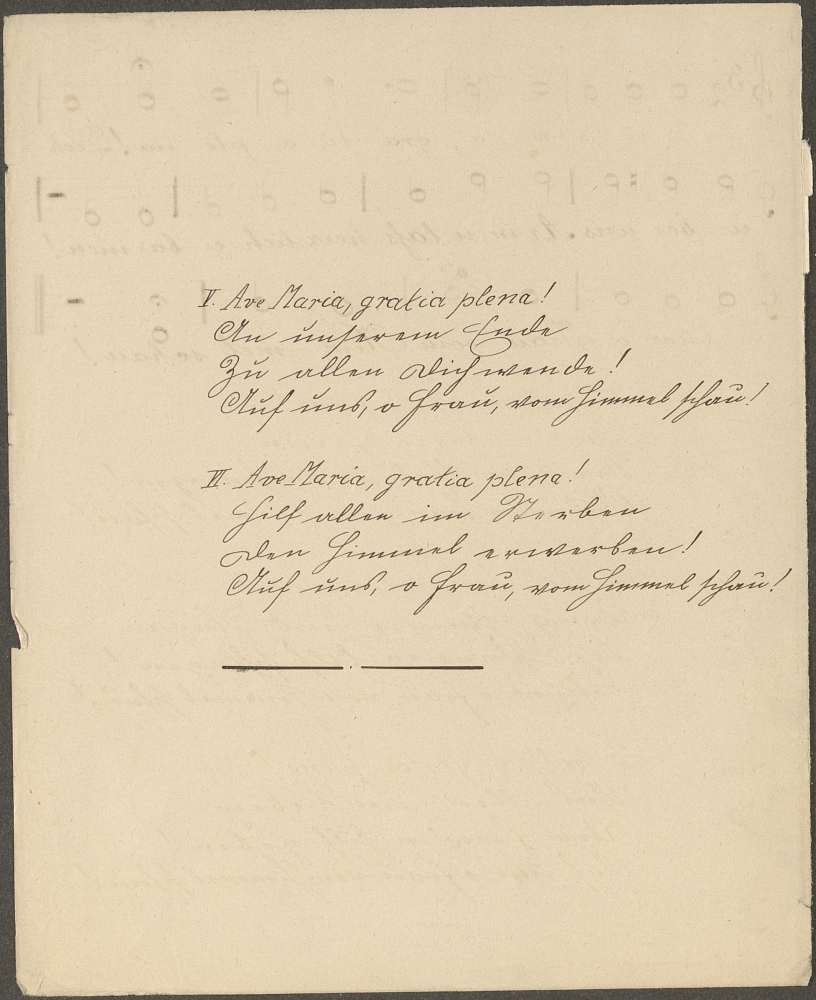 V. Ave Maria, gratia plena!
An unserem Ende
Zu allen Dich wende!
Auf uns, o Frau, vom Himmel schau!
VI. Ave Maria, gratia plena!
Hilf allen im Sterben
Den Himmel erwerben!
Auf uns, o Frau, vom Himmel schau!